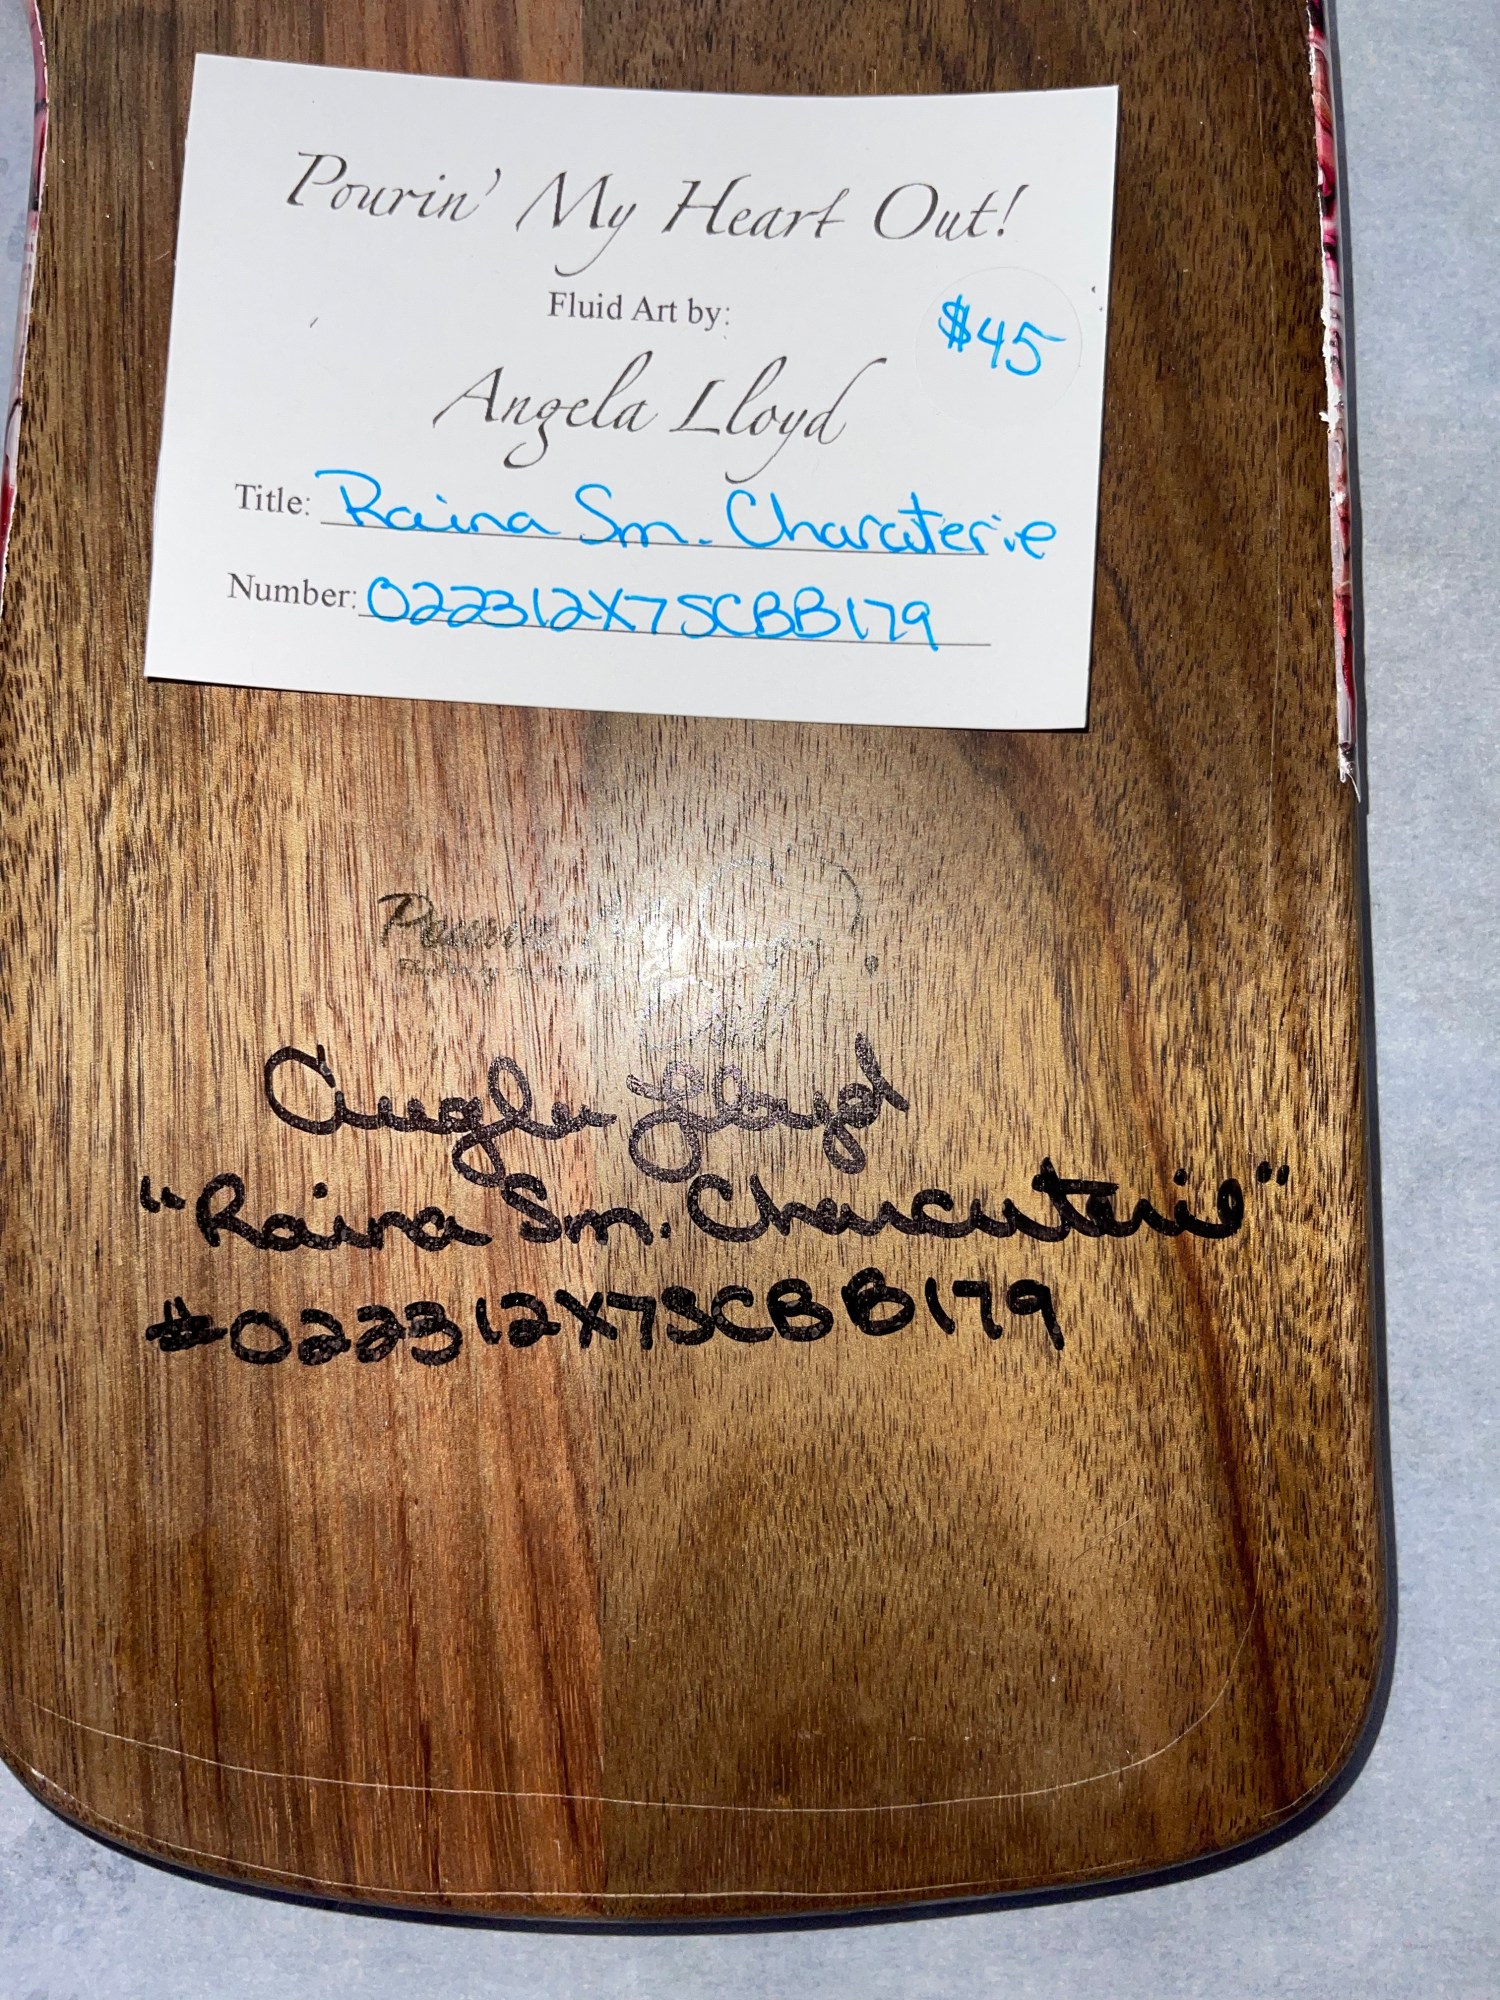 Pourin' My Heart Out!
Fluid Art by:
$45
Angela Lloyd
Title: Raina Sm. Charcuterie
Number: 022312X7SCBB179
Pourin'
Angela Lloyd
"Raina Sm. Charcuterie"
#022312X7SCBB179